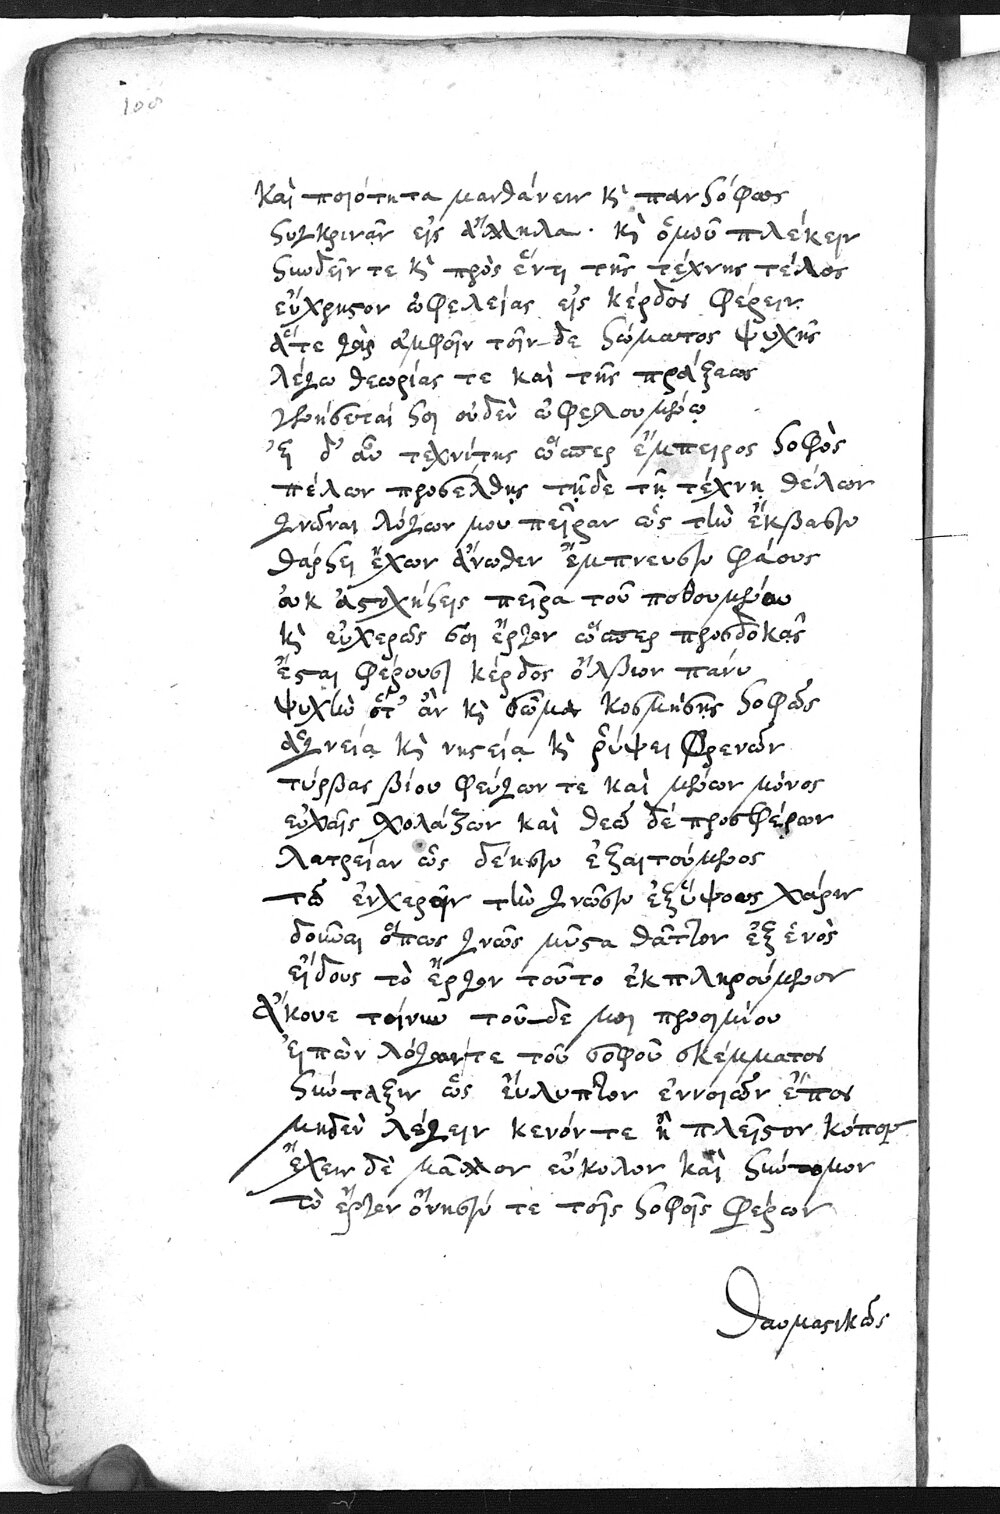 100
Καὶ ποιότητα μανθάνειν κὶ πανσόφως
συγκρινᾶν εἰς ἄλληλα · κὶ ὁμοῦ πλέκειν
συνδεῖν τε κὶ πρὸς ἕν τι τῆς τέχνης τέλος
εὔχρηστον ὠφελείας εἰς κέρδος φέρειν
ἅτε γὰρ ἀμφοῖν τοῖν δε σώματος ψυχῆς
λέγω θεωρίας τε καὶ τῆς πράξεως
σοι οὐδὲν ὠφελουμένῳ
Εἰ δ' ἂν τεχνίτης ὥσπερ ἔμπειρος σοφὸς
πέλων προσέλθῃς τῇδε τῇ τέχνῃ θέλων
γνῶναι λόγων μου πεῖραν ὡς τὴν ἔκβασιν
θάρσει ἔχων ἄνωθεν ἔμπνευσιν φάους
οὐκ ἀστοχήσεις πεῖρα τοῦ ποθουμένου
κὶ εὐχερῶς σοι ἔργον ὥσπερ προσδοκᾷς
ἔσται φέρουσι κέρδος ὄλβιον πάνυ
ψυχὴν ὅτ' ἂν κὶ σῶμα κοσμήσῃς σοφῶς
ἁγνείᾳ κὶ νηστείᾳ κὶ ῥύψει φρενῶν
τύρβας βίου φεύγων τε καὶ μένων μόνος
εὐχαῖς σχολάζων καὶ θεῷ δὲ προσφέρων
λατρείαν ὡς δέησιν ἐξαιτούμενος
τοῦ ἐγχερεῖν τὴν γνῶσιν ἐξ ὕψους χάριν
δοῦναι ὅπως γνῶς μῦστα θᾶττον ἐξ ἑνὸς
εἴδους τὸ ἔργον τοῦτο ἐκπληρούμενον
Ἄκουε τοίνυν τοῦ δε μοι προοιμίου
Εἰπὼν λόγον τε τοῦ σοφοῦ σκέμματος
σύνταξιν ὡς εὔληπτον ἐννοιῶν ἔπος
μηδὲν λέγειν κενόν τε ἢ πλεῖστον κόπον
ἔχειν δὲ μᾶλλον εὔκολον καὶ σύντομον
τὸ ἔργον ὄνησίν τε τοῖς σοφοῖς φέρων
θαυμαστικῶς